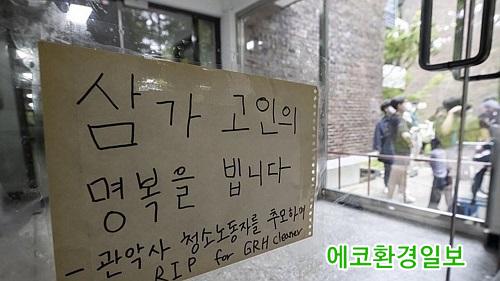 삼가 고인의
명복을 빕니다
- 관악사 청소노동자를 추모하며
RIP for GRH cleaner
에코환경일보